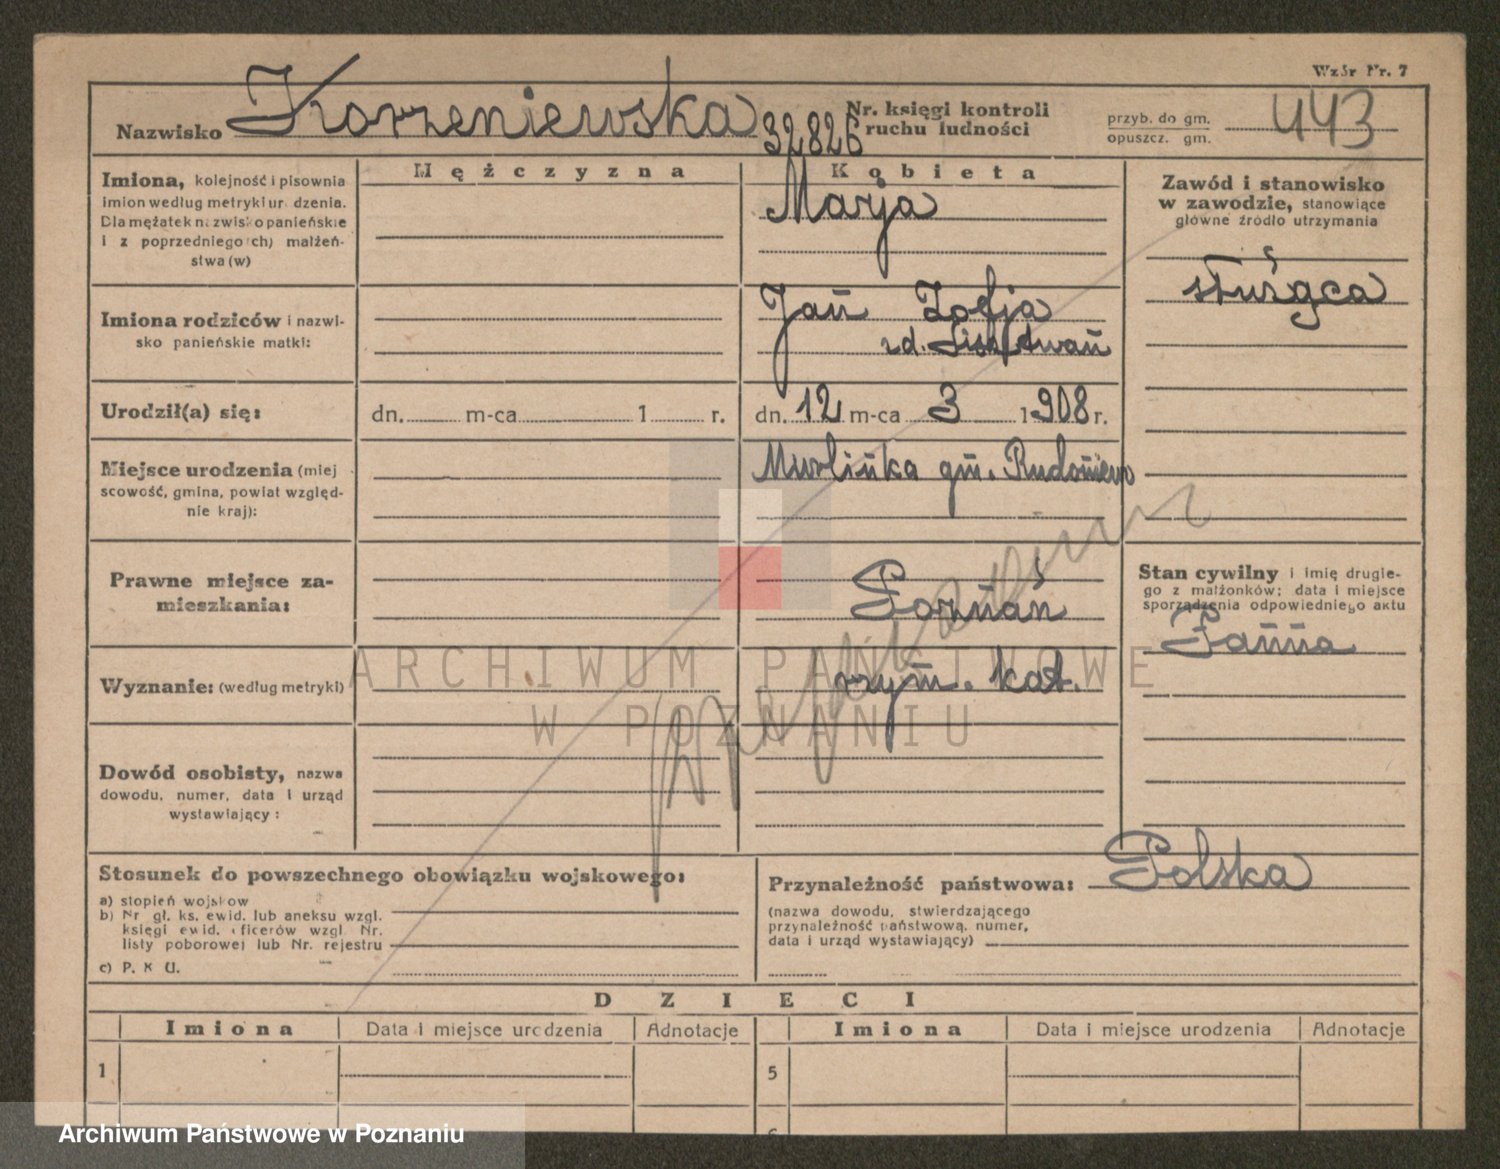 Wzór Nr. 7
Nazwisko Korzeniewska 32826
Nr. księgi kontroli
ruchu ludności
przyb. do gm. 443
opuszcz. gm.
Imiona, kolejność i pisownia
imion według metryki urodzenia.
Dla mężatek nazwisko panieńskie
i z poprzedniego(ch) małżeń-
stwa(w)
Mężczyzna
Kobieta
Marja
Zawód i stanowisko
w zawodzie, stanowiące
główne źródło utrzymania
służąca
Imiona rodziców i nazwi-
sko panieńskie matki:
Jan Zofja
zd.
Urodził(a) się:
dn. m-ca 1 r.
dn. 12 m-ca 3 1908 r.
Miejsce urodzenia (miej
scowość, gmina, powiat względ-
nie kraj):
Murlinka gm.
Prawne miejsce za-
mieszkania:
Poznań
Stan cywilny i imię drugie-
go z małżonków; data i miejsce
sporządzenia odpowiedniego aktu
Panna
Wyznanie: (według metryki)
rzym. kat.
Dowód osobisty, nazwa
dowodu, numer, data i urząd
wystawiający:
Stosunek do powszechnego obowiązku wojskowego:
a) stopień wojskow
b) Nr gł. ks. ewid. lub aneksu wzgl.
księgi ewid. oficerów wzgl. Nr.
listy poborowej lub Nr. rejestru
c) P. K U.
Przynależność państwowa: Polska
(nazwa dowodu, stwierdzającego
przynależność państwową, numer,
data i urząd wystawiający)
DZIECI
Imiona Data i miejsce urodzenia Adnotacje Imiona Data i miejsce urodzenia Adnotacje
1 5
ARCHIWUM PAŃSTWOWE
W POZNANIU
Archiwum Państwowe w Poznaniu